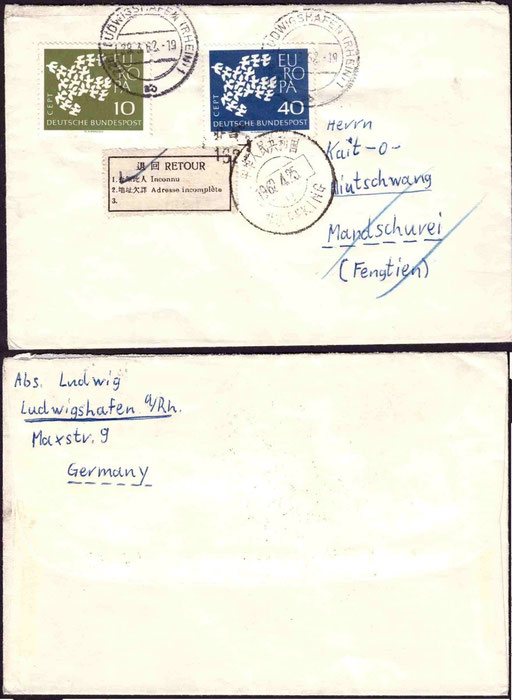 LUDWIGSHAFEN (RHEIN) 1
LUDWIGSHAFEN (RHEIN) 1
62.-19
EUROPA
CEPT
10
DEUTSCHE BUNDESPOST
EUROPA
CEPT
40
DEUTSCHE BUNDESPOST
退回 RETOUR
1. Inconnu
2.地址欠詳 Adresse incomplète
3.
1962.4.25
Herrn
Kait-o-
Mandschurei
(Fengtien)
Abs. Ludwig
Ludwigshafen a/Rh.
Maxstr. 9
Germany